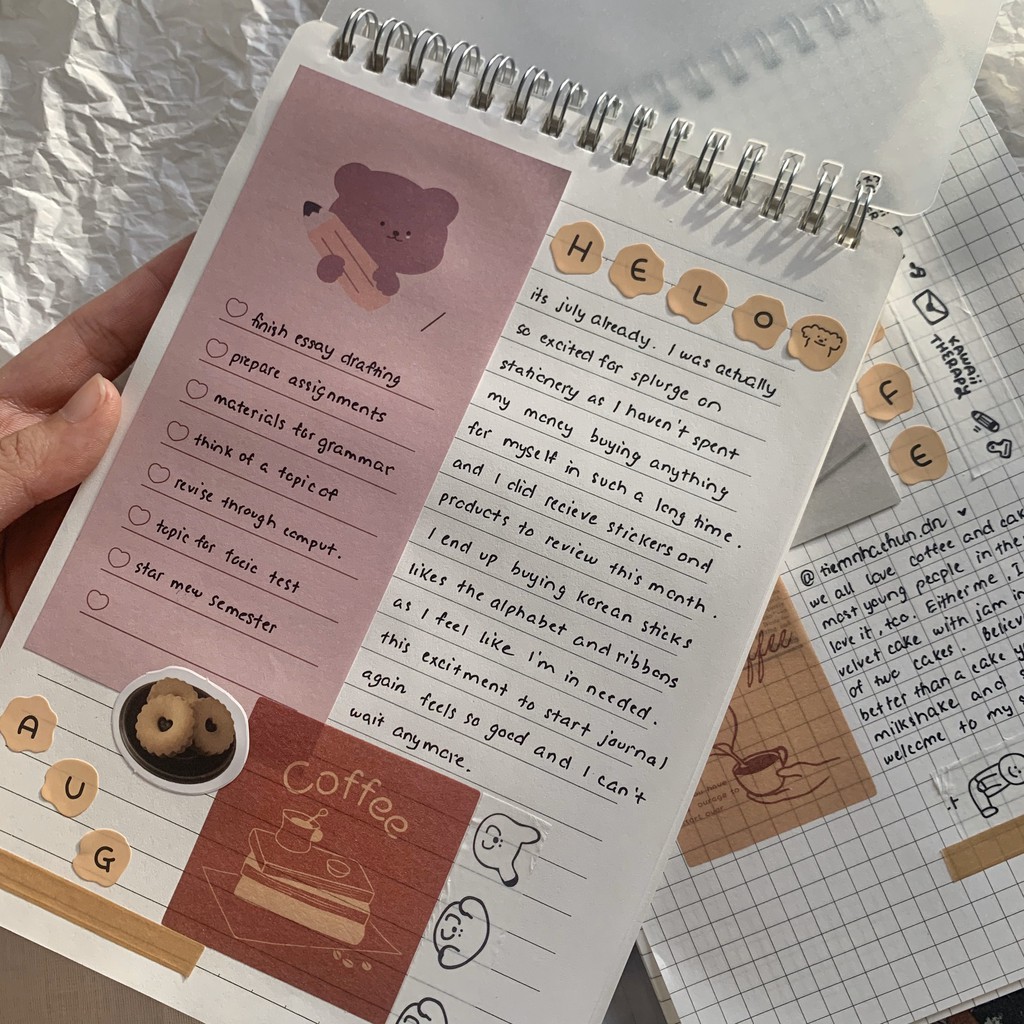 H E L O
finish essay drafting
prepare assignments
materials for grammar
think of a topic of
revise through comput.
topic for toeic test
star mew semester
its july already. I was actually
so excited for splurge on
stationery as I haven't spent
my money buying anything
for myself in such a long time.
and I did recieve stickers and
products to review this month.
I end up buying korean sticks
likes the alphabet and ribbons
as I feel like I'm in needed.
this excitment to start journal
again feels so good and I can't
wait anymore.
A U G
Coffee
KAWAII
THERAPY
F E
@tiemnha.chun.dn
we all love coffee and
most young people in the
love it, too. Either me, I
velvet cake with jam in
of two cakes. Believ
better than a cake
milkshake and
welcome to my